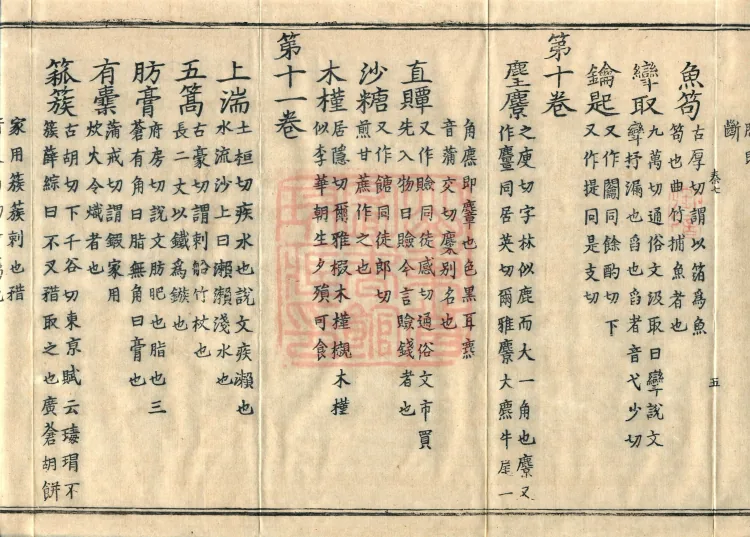 斷
卷七
五
魚笱古厚切謂以箔爲魚
笱也曲竹捕魚者也
㪻取九萬切通俗文汲取曰㪻說文
㪻抒漏也舀也舀者音弋少切
鑰匙又作𨷲同餘酌切下
又作提同是支切
第十卷
麈麖之庾切字林似鹿而大一角也麖又
作麠同居英切爾雅麖大麃牛尾一
角麃即麞也色黑耳麃
音蒲交切麇別名也
直贉又作賧同徒感切通俗文市買
先入物曰賧今言賧錢者也
沙糖又作餹同徒郎切
煎甘蔗作之也
木槿居隱切爾雅椵木槿櫬木槿
似李華朝生夕殞可食
第十一卷
上湍土桓切疾水也說文疾瀨也
水流沙上曰瀨瀨淺水也
五篙古豪切謂刺船竹杖也
長二丈以鐵爲鏃也
肪膏府房切說文肪肥也脂也三
蒼有角曰脂無角曰膏也
有橐蒲戒切謂鍛家用
炊火令熾者也
箛簇古胡切下千谷切東京賦云瑇瑁不
簇薛綜曰不叉矠取之也廣蒼胡餅
家用簇簇刺也矠